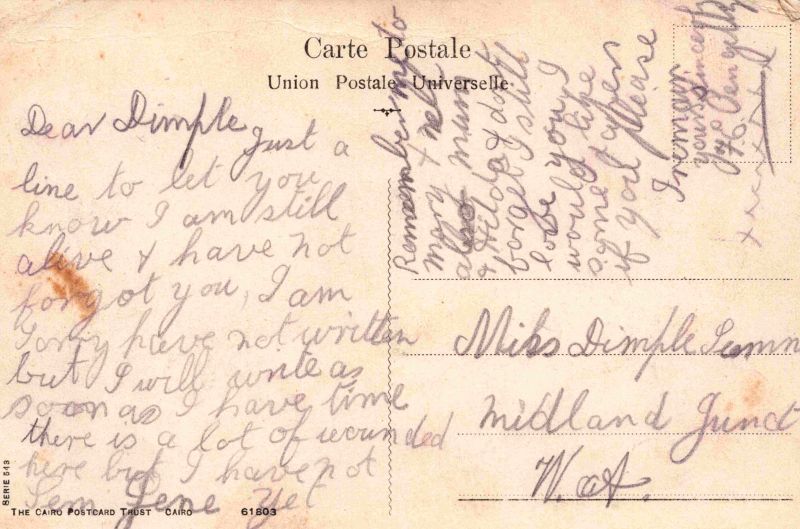 Carte Postale
Union Postale Universelle
Dear Dimple Just a
line to let you
know I am still
alive & have not
forgot you, I am
Sorry have not written
but I will write as
soon as I have time
there is a lot of wounded
here but I have not
Seen Gene yet
Remember me to
mary & nell
also mum
& Hilda & dont
forget I still
love you I
would like
some papers
if you please
I remain
yours sincerely
Miss Dimple Sumn
Midland Junct
W. A.
SERIE 543
THE CAIRO POSTCARD TRUST CAIRO 61803